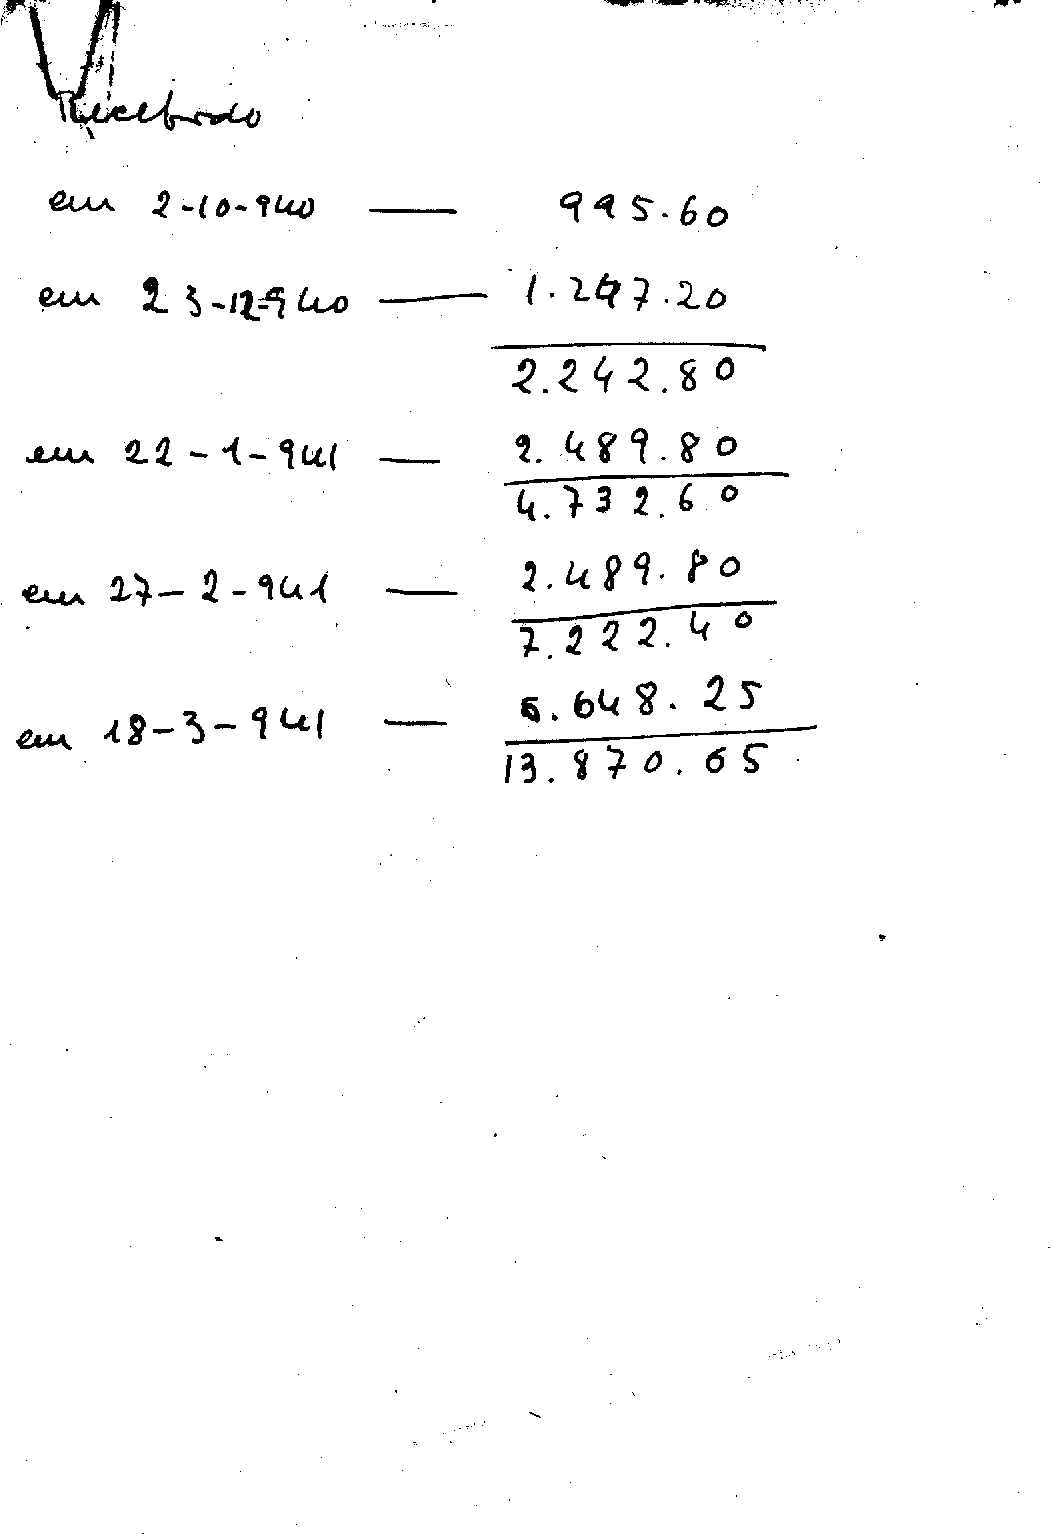 Recebido
em 2-10-940 — 995.60
em 23-12-940 — 1.247.20
2.242.80
em 22-1-941 — 2.489.80
4.732.60
em 27-2-941 — 2.489.80
7.222.40
em 18-3-941 — 6.648.25
13.870.65